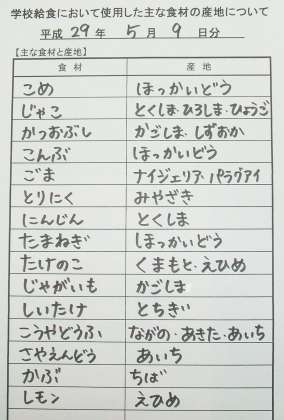 学校給食において使用した主な食材の産地について
平成 29 年 5 月 9 日分
【主な食材と産地】
食材 産地
こめ ほっかいどう
じゃこ とくしま・ひろしま・ひょうご
かつおぶし かごしま、しずおか
こんぶ ほっかいどう
ごま ナイジェリア・パラグアイ
とりにく みやざき
にんじん とくしま
たまねぎ ほっかいどう
たけのこ くまもと・えひめ
じゃがいも かごしま
しいたけ とちぎ
こうやどうふ ながの・あきた・あいち
さやえんどう あいち
かぶ ちば
レモン えひめ